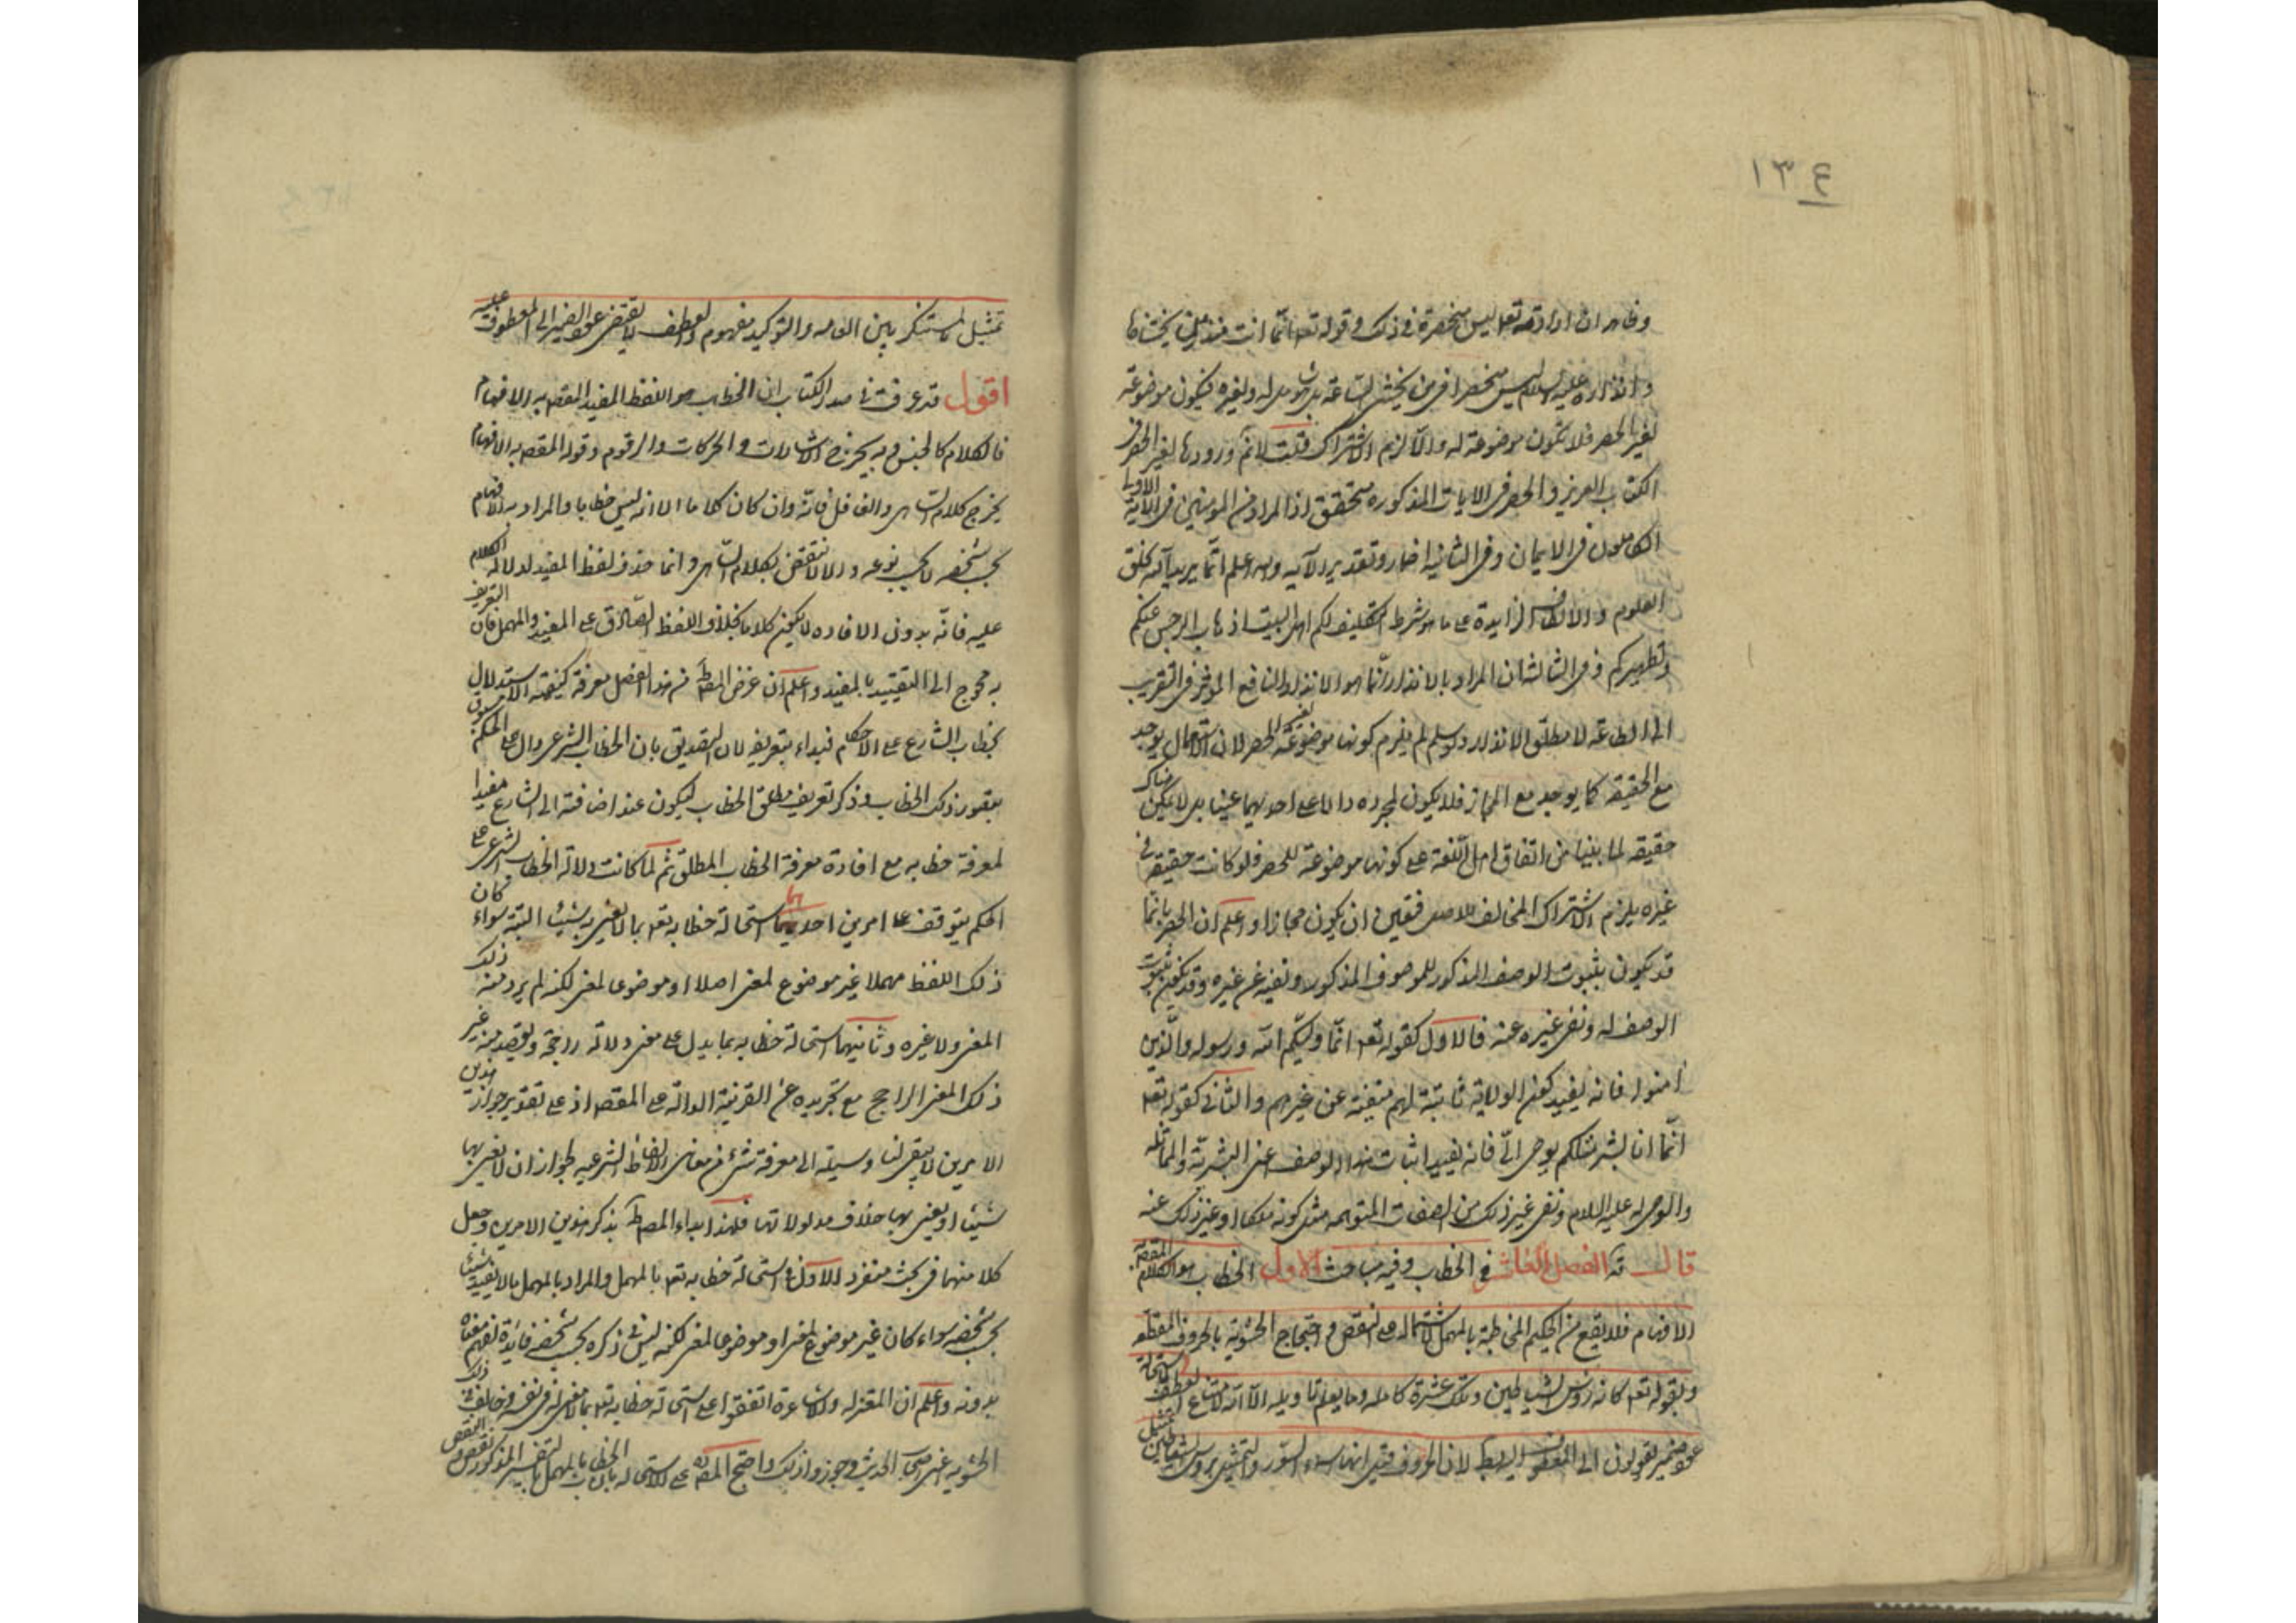 ١٣٤
وظاهر ان ارادته تعه ليس منحصرة في ذلك وقوله تعه انما انت منذر من يخشاها
وانذاره عليه السلام ليس منحصرا في من يخشى الساعة بل هو له ولغيره فيكون موضوعة
لغير الحصر فلا تكون موضوعة له والا لزم الاشتراك قلت لا نم ورودها لغير الحصر في
الكتاب العزيز والحصر في الايات المذكورة متحقق اذا المراد من المؤمنين في الاية الاولى
الكاملون في الايمان وفي الثانية اضمار وتقدير الآية والله اعلم انما يريد الله بخلق
العلوم والالطاف الزايدة على ما هو شرط التكليف لكم اهل البيت اذهاب الرجس عنكم
وتطهيركم وفي الثالثة ان المراد بالانذار انما هو الانذار النافع المؤثر في التقريب
الى الطاعة لا مطلق الانذار ولو سلم لم يلزم كونها موضوعة لغير الحصر لان الاستعمال يوجد
مع الحقيقة كما يوجد مع المجاز فلا يكون لمجرده دالا على احديهما عينا بل لا يكون هناك
حقيقة لما بينا من اتفاق اهل اللغة على كونها موضوعة للحصر فلو كانت حقيقة في
غيره يلزم الاشتراك المخالف للاصل فتعين ان يكون مجازا واعلم ان الحصر بانما
قد يكون بثبوت الوصف المذكور للموصوف المذكور ونفيه عن غيره وقد يكون بثبوت
الوصف له ونفي غيره عنه فالاول كقوله تعه انما وليكم الله ورسوله والذين
امنوا فانه يفيد كون الولاية ثابتة لهم منفية عن غيرهم والثاني كقوله تعه
انما انا بشر مثلكم يوحى الي فانه يفيد اثبات هذا الوصف اعني البشرية والمماثلة
والوحي له عليه السلام ونفي غير ذلك من الصفات المتوهمة مثل كونه ملكا او غير ذلك عنه
قال قه الفصل العاشر في الخطاب وفيه مباحث الاول الخطاب هو الكلام المقصد به
الافهام فلا يقع من الحكيم المخاطبة بالمهمل لاشتماله على النقص واحتجاج الحشوية بالحروف المقطعه
وبقوله تعه كانه رؤس الشياطين وتلك عشرة كاملة وما يعلم تاويله الا الله لامتناع العطف لاستحالة
عود ضمير يقولون الى المعطوف عليه بط لان الحروف قيل انها اسماء السور والتمثيل برؤس الشياطين تمثيل
تمثيل بمستنكر بين العامة والتوكيد مفهوم والعطف لا يقتضي عود الضمير الى المعطوف عليه
اقول قد عرفت في صدر الكتاب ان الخطاب هو اللفظ المفيد المقصد به الافهام
فالكلام كالجنس وبه يخرج الاشارات والحركات والرقوم وقوله المقصد به الافهام
يخرج كلام الساهي والغافل فانه وان كان كلاما الا انه ليس خطابا والمراد به الافهام
بحسب شخصه لا بحسب نوعه والا لانتقض بكلام الساهي وانما حذف لفظ المفيد لدلالة الكلام
عليه فانه بدون الافاده لا يكون كلاما بخلاف اللفظ الصادق على المفيد والمهمل فان التعريف
به محوج الى التقييد بالمفيد واعلم ان غرض المصط من هذا الفصل معرفة كيفية الاستدلال
بخطاب الشارع على الاحكام فبداء بتعريفه لان التصديق بان الخطاب الشرعي دال على الحكم مسبوق
بتصور ذلك الخطاب وذكر تعريف مطلق الخطاب ليكون عند اضافته الى الشارع مفيدا
لمعرفة خطابه مع افادة معرفة الخطاب المطلق ثم لما كانت دلالة الخطاب الشرعي على
الحكم يتوقف على امرين احديهما استحالة خطابه تعه بما لا يعني به شيئا البتة سواء كان
ذلك اللفظ مهملا غير موضوع لمعنى اصلا او موضوعا لمعنى لكنه لم يرد منه ذلك
المعنى ولا غيره وثانيهما استحالة خطابه بما يدل على معنى دلالة راجحة ويقصد منه غير
ذلك المعنى الراجح مع تجريده عن القرينة الدالة على المقصد اذ على تقدير جواز هذين
الامرين لا يبقى لنا وسيلة الى معرفة شيء من معاني الالفاظ الشرعيه لجواز ان لا يعني بها
شيئا او يعني بها خلاف مدلولاتها فلهذا ابداء المصط بذكر هذين الامرين وجعل
كلا منهما في بحث منفرد الاول في استحالة خطابه تعه بالمهمل والمراد بالمهمل ما لا يفيد شيئا
بحسب شخصه سواء كان غير موضوع لمعنى او موضوعا لمعنى لكنه ليس في ذكره بحسب شخصه فايدة لفهم معناه
بدونه واعلم ان المعتزله والاشاعرة اتفقوا على استحالة خطابه تعه بما لا معنى له في نفسه وخالف في ذلك
الحشويه اعني اصحاب الحديث وجوزوا ذلك واحتج المصط على الاستحالة بان الخطاب بالمهمل بالتفسير المذكور نقص والنقص